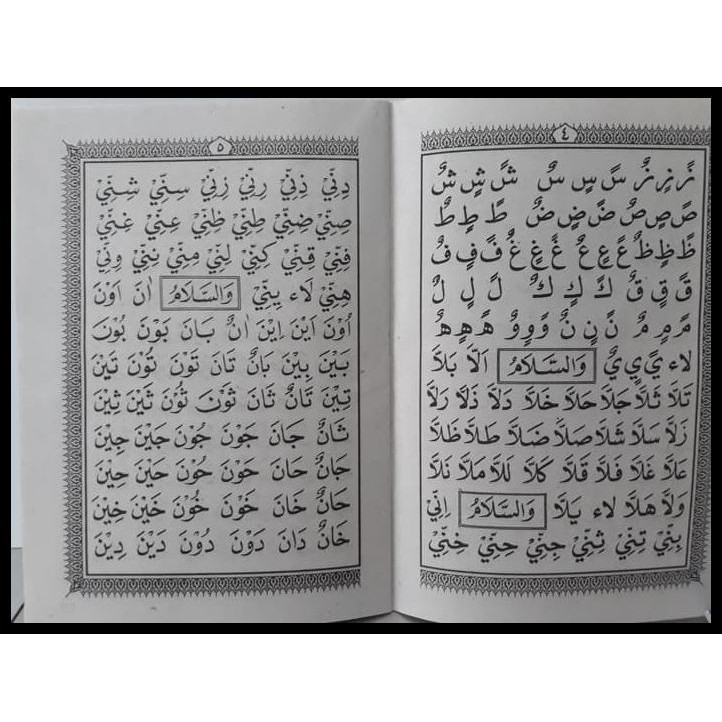 ٤
زً زٍ زٌ سً سٍ سٌ شً شٍ شٌ
صً صٍ صٌ ضً ضٍ ضٌ طً طٍ طٌ
ظً ظٍ ظٌ عً عٍ عٌ غً غٍ غٌ فً فٍ فٌ
قً قٍ قٌ كً كٍ كٌ لً لٍ لٌ
مً مٍ مٌ نً نٍ نٌ وً وٍ وٌ هً هٍ هٌ
لاء يً يٍ يٌ وَالسَّلَامُ اَلَّا بَلَّا
تَلَّا ثَلَّا جَلَّا حَلَّا خَلَّا دَلَّا ذَلَّا رَلَّا
زَلَّا سَلَّا شَلَّا صَلَّا ضَلَّا طَلَّا ظَلَّا
عَلَّا غَلَّا فَلَّا قَلَّا كَلَّا لَلَّا مَلَّا نَلَّا
وَلَّا هَلَّا لاء يَلَّا وَالسَّلَامُ اِنِّيْ
بِنِّيْ تِنِّيْ ثِنِّيْ جِنِّيْ حِنِّيْ خِنِّيْ
٥
دِنِّيْ ذِنِّيْ رِنِّيْ زِنِّيْ سِنِّيْ شِنِّيْ
صِنِّيْ ضِنِّيْ طِنِّيْ ظِنِّيْ عِنِّيْ غِنِّيْ
فِنِّيْ قِنِّيْ كِنِّيْ لِنِّيْ مِنِّيْ نِنِّيْ وِنِّيْ
هِنِّيْ لَاء يِنِّيْ وَالسَّلَامُ اٰنَ اَوْنَ
اُوْنَ اَيْنَ اِيْنَ اٰنٌ بَانَ بَوْنَ بُوْنَ
بَيْنَ بِيْنَ بَانٌ تَانَ تَوْنَ تُوْنَ تَيْنَ
تِيْنَ تَانٌ ثَانَ ثَوْنَ ثُوْنَ ثَيْنَ ثِيْنَ
ثَانٌ جَانَ جَوْنَ جُوْنَ جَيْنَ جِيْنَ
جَانٌ حَانَ حَوْنَ حُوْنَ حَيْنَ حِيْنَ
حَانٌ خَانَ خَوْنَ خُوْنَ خَيْنَ خِيْنَ
خَانٌ دَانَ دَوْنَ دُوْنَ دَيْنَ دِيْنَ